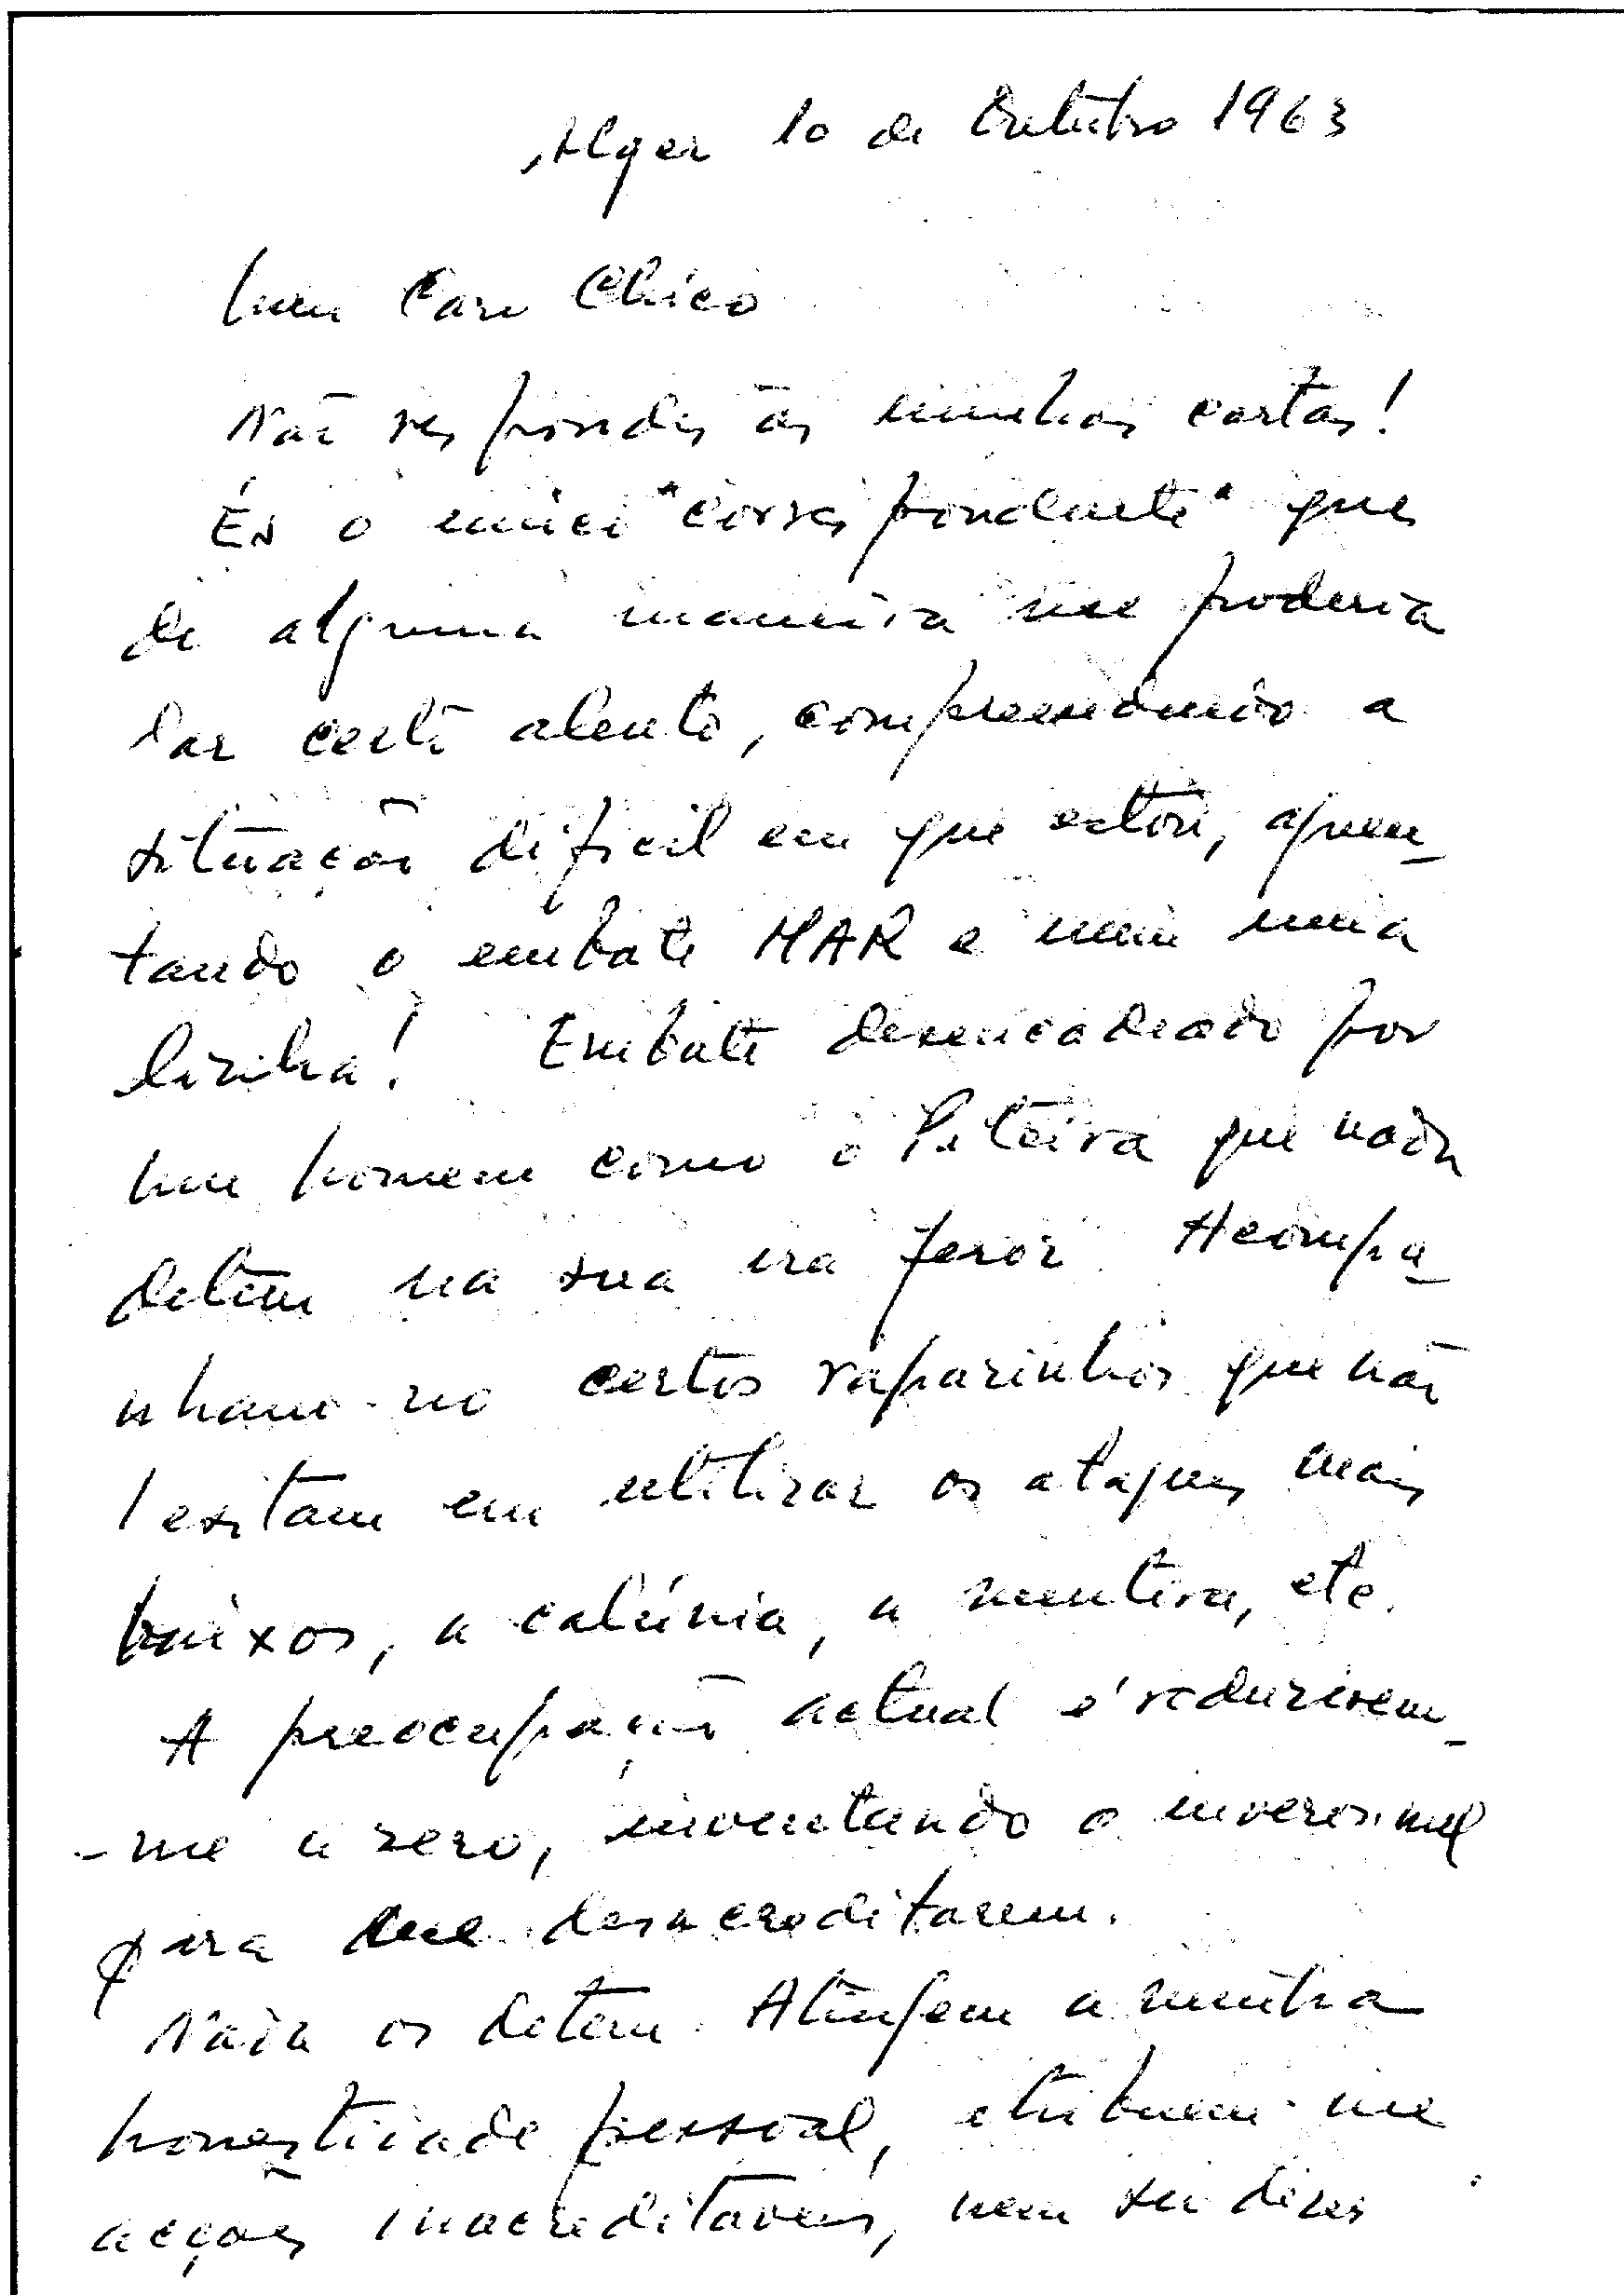 Alger 10 de Outubro 1963
Meu Caro Chico
Não respondes às minhas cartas!
És o único "correspondente" que
de alguma maneira me poderia
dar certo alento, compreendendo a
situação dificil em que estou, aguen-
tando o embate MAR e nem uma
linha! Embate desencadeado por
um homem como o Piteira que nada
detem na sua ira feroz. Acompa-
nham-no certos rapazinhos que não
exitam em utilizar os ataques mais
baixos, a calúnia, a mentira, etc.
A preocupação actual é reduzirem-
-me a zero, inventando o inverosimel
para me desacreditarem.
Nada os detem. Atingem a minha
honestidade pessoal, atribuem-me
acções inacreditaveis, nem